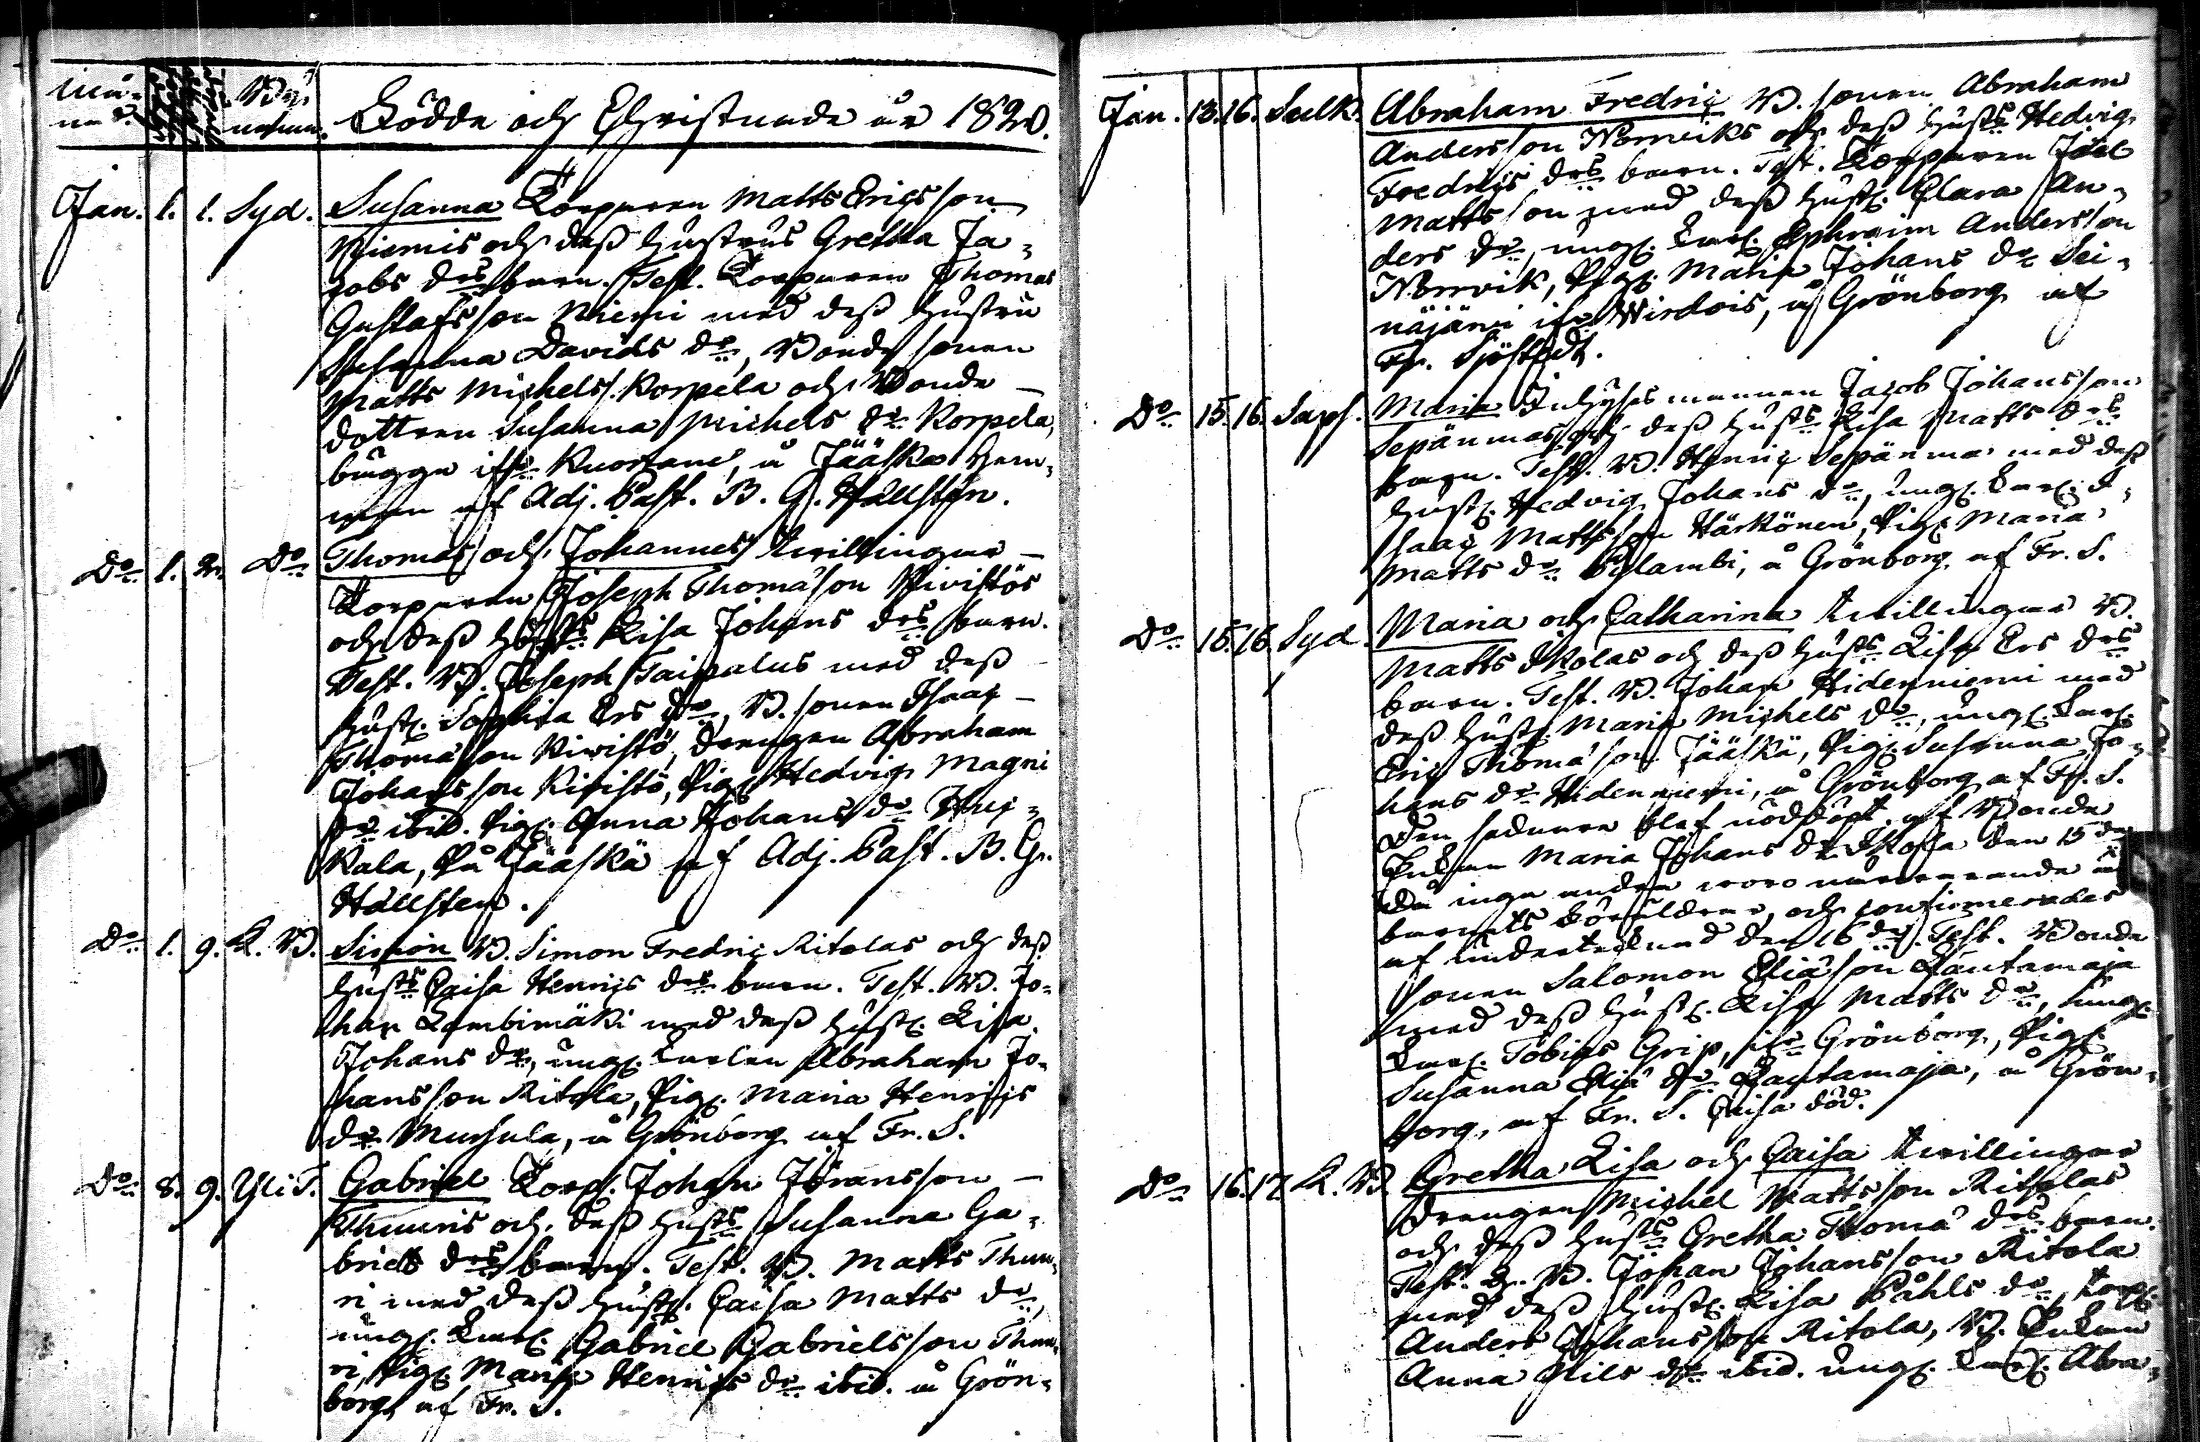 Måna- By-
nad. namn. Födde och Christnade år 1820.
Jan. 1. 1. Syd. Susanna Torparen Matts Ericsson
Niemis och dess hustrus Gretha Ja-
cobs drs barn. Test. Torparen Thomas
Gustafsson Niemi med dess hustru
Susanna Davids dr, Bonde sonen
Matts Michelss. Korpela och Bonde
dottren Susanna Michels dr Korpela,
bägge ifr. Kuortane, å Jääskä Hem-
man af Adj. Past. B. G. Hällsten.
Do 1. 2. Do Thomas och Johannes twillingar
Torparen Joseph Thomasson Kivistös
och dess husts Lisa Johans drs barn.
Test. B. Joseph Taipalus med dess
hust. Sophia Ers dr, B. sonen Isaac
Thomasson Kivistö, Drengen Abraham
Johansson Kivistö, Pig. Hedvig Magni
dr ibid. Pig. Anna Johans dr
kala, På Jääskä af Adj. Past. B. G.
Hällsten.
Do 1. 9. K. B. Simon B. Simon Fredric Ritolas och dess
husts Caisa Henrics drs barn. Test. B. Jo-
han Lambimäki med dess hust. Lisa
Johans dr, ung. karlen Abraham Jo-
hansson Ritola, Pig. Maria Henrics
dr Mursula, å Grönborg af Fr. S.
Do 8. 9. Yli T. Gabriel Torp. Johan Jöransson
Thuuris och dess husts Susanna Ga-
briels drs barn. Test. B. Matts Thuu-
ri med dess hust. Caisa Matts dr,
ung. kar. Gabriel Gabrielsson Thuu-
ri, Pig. Maria Henrics dr ibid. å Grön-
borg af Fr. S.
Jan. 13. 16. Salk. Abraham Fredric B. sonen Abraham
Andersson Norrviks och dess husts Hedvig
Fredrics drs barn. Test. Torparen Joel
Mattsson med dess hust. Clara An-
ders dr, ung. kar. Ephraim Andersson
Norrvik, Pig. Maria Johans dr Sei-
näjärvi ifr. Wirdois, å Grönborg af
Fr. Sjöstedt.
Do 15. 16. Saps. Maria Inhyses mannen Jacob Johansson
Sepänmas och dess husts Lisa Matts drs
barn. Test. B. Henric Sepänmaa med dess
hust. Hedvig Johans dr, ung. kar. I-
saac Mattsson Härkönen, Pig. Maria
Matts dr Pylambi, å Grönborg af Fr. S.
Do 15. 16. Syd. Maria och Catharina twillingar B.
Matts Ikolas och dess husts Lisa Ers drs
barn. Test. B. Johan Hidenniemi med
dess hust. Maria Michels dr, ung. kar.
Eric Thomasson Jääskä, Pig. Susanna Jo-
hans dr Hidenniemi, å Grönborg af Fr. S.
Den sednare blef nöddöpt af Bonde
Enkan Maria Johans dr Ikola den 15 de
då inga andra woro närwarande än
barnets föräldrar, och confirmerades
af undertecknad den 16 de. Test. Bonde
sonen Salomon Eliasson Rautamaja
med dess hust. Lisa Matts dr, ung.
kar. Tobias Grip, ifr. Grönborg, Pig.
Susanna Elia dr Rautamaja, å Grön-
borg, af Fr. S. Caisa död.
Do 16. 17. K. B. Gretha Lisa och Caisa twillingar
Drengen Michel Mattsson Ritolas
och dess husts Gretha Thomae drs barn.
Test. B. Johan Johansson Ritola
med dess hust. Lisa Påhls dr, Torp.
Anders Johansson Ritola, B. Enkan
Anna Nils dr ibid. ung. kar. Abra-